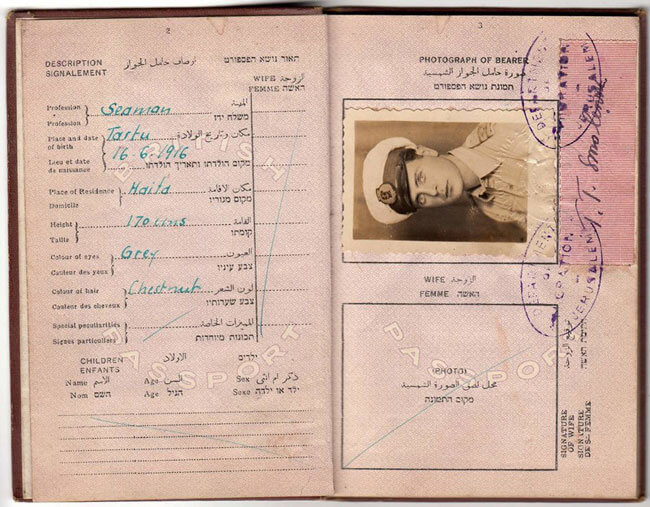 2
DESCRIPTION اوصاف حامل الجواز תאור נושא הפספורט
SIGNALEMENT
WIFE الزوجة
FEMME האשה
Profession Seaman المهنة
Profession משלח ידו
Place and date of birth Tartu مكان وتاريخ الولادة
16.6.1916
Lieu et date de naissance מקום הולדתו ותאריך הולדתו
Place of Residence Haifa مكان الاقامة
Domicile מקום מגוריו
Height 170 cms القامة
Taille קומתו
Colour of eyes Grey العيون
Couleur des yeux צבע עיניו
Colour of hair Chestnut لون الشعر
Couleur des cheveux צבע שערותיו
Special peculiarities المميزات الخاصة
Signes particuliers תכונות מיוחדות
CHILDREN الاولاد ילדים
ENFANTS
Name الاسم Age السن Sex ذكر ام انثى
Nom השם Age הגיל Sexe ילד או ילדה
PASSPORT
3
PHOTOGRAPH OF BEARER
صورة حامل الجواز الشمسية
תמונת נושא הפספורט
WIFE الزوجة
FEMME האשה
(PHOTO)
محل لصق الصورة الشمسية
מקום התמונה
PASSPORT
SIGNATURE OF WIFE
SIGNATURE DE SA FEMME
توقيع الزوجة
חתימת האשה
JERUSALEM
JERUSALEM